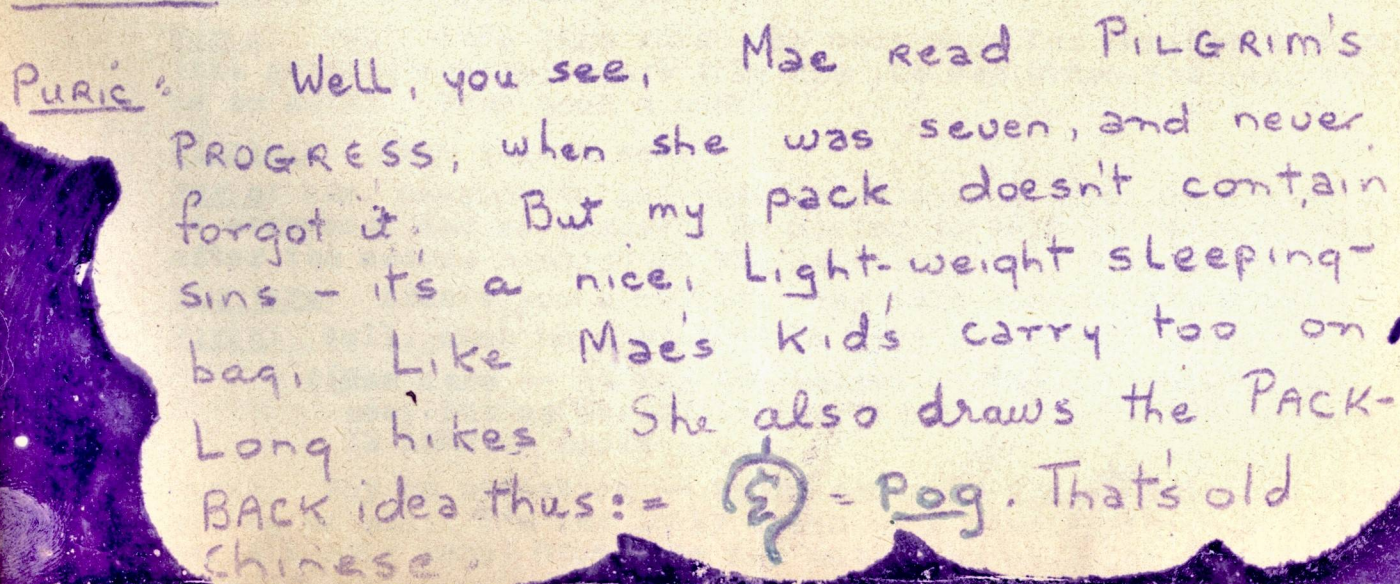 Puric: Well, you see, Mae read PILGRIM'S
PROGRESS, when she was seven, and never
forgot it. But my pack doesn't contain
sins – it's a nice, Light-weight sleeping-
bag, Like Mae's kid's carry too on
Long hikes. She also draws the PACK-
BACK idea thus:= = Pog. That's old
Chinese.